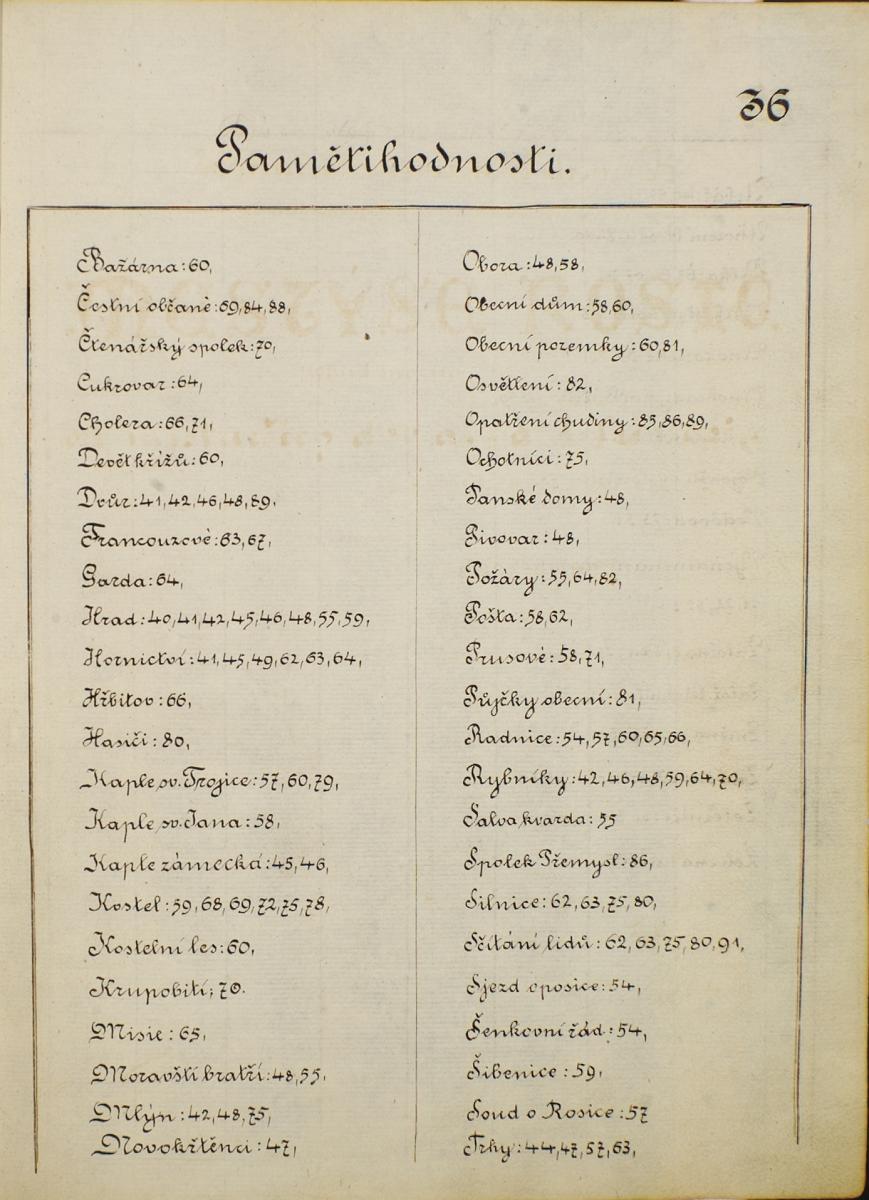 36
Pamětihodnosti.
Bažárna: 60,
Čestní občané: 69, 84, 88,
Čtenářský spolek: 70,
Cukrovar: 64,
Cholera: 66, 71,
Devět křížů: 60,
Dvůr: 41, 42, 46, 48, 89.
Francouzové: 63, 67,
Garda: 64,
Hrad: 40, 41, 42, 45, 46, 48, 55, 59,
Hornictví: 41, 45, 49, 62, 63, 64,
Hřbitov: 66,
Hasiči: 80,
Kaple sv. Trojice: 57, 60, 79,
Kaple sv. Jana: 58,
Kaple zámecká: 45, 46,
Kostel: 59, 68, 69, 72, 75, 78,
Kostelní les: 60,
Krupobití; 70.
Misie: 65,
Moravští bratří: 48, 55,
Mlýn: 42, 48, 75,
Novokřtěnci: 47,
Obora: 48, 58,
Obecní dům: 58, 60,
Obecní pozemky: 60, 81,
Osvětlení: 82,
Opatření chudiny: 85, 86, 89,
Ochotníci: 75,
Panské domy: 48,
Pivovar: 48,
Požáry: 55, 64, 82,
Pošta: 58, 62,
Prusové: 58, 71,
Půjčky obecní: 81,
Radnice: 54, 57, 60, 65, 66,
Rybníky: 42, 46, 48, 59, 64, 70,
Salva kvarda: 55
Spolek Přemysl: 86,
Silnice: 62, 63, 75, 80,
Sčítání lidů: 62, 63, 75, 80, 91,
Sjezd oposice: 54,
Šenkovní řád: 54,
Šibenice: 59,
Soud o Rosice: 57
Trhy: 44, 47, 57, 63,